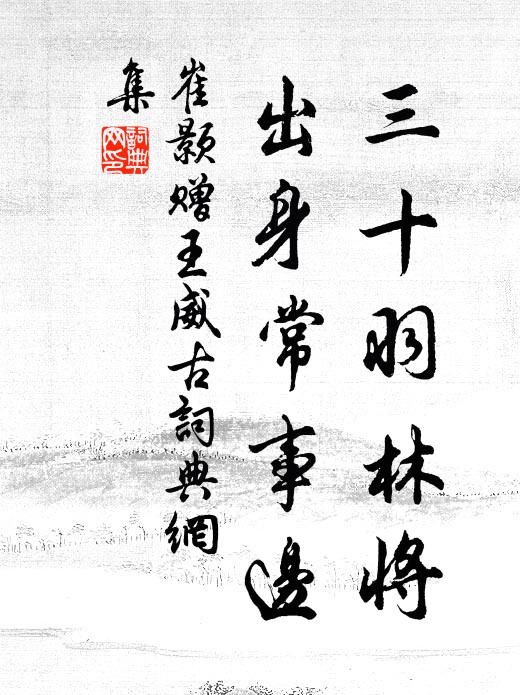 三十羽林將
出身常事邊
崔顥贈王威古詞典網
集
詞典網印